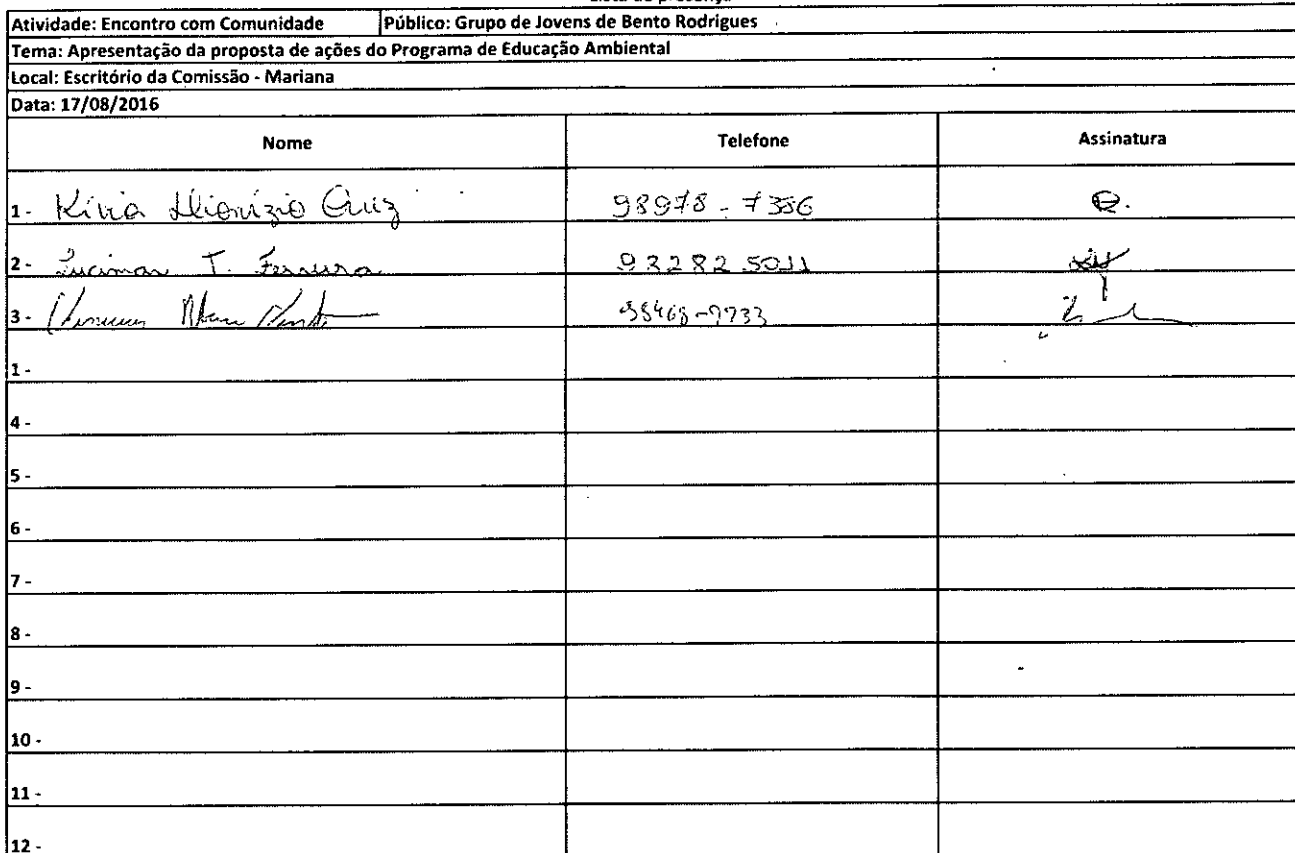 Lista de presença
Atividade: Encontro com Comunidade Público: Grupo de Jovens de Bento Rodrigues
Tema: Apresentação da proposta de ações do Programa de Educação Ambiental
Local: Escritório da Comissão - Mariana
Data: 17/08/2016
Nome Telefone Assinatura
1- Kívia Dionízio Cruz 98978-7386
2- Lucimar T. Ferreira
3-
1-
4-
5-
6-
7-
8-
9-
10-
11-
12-